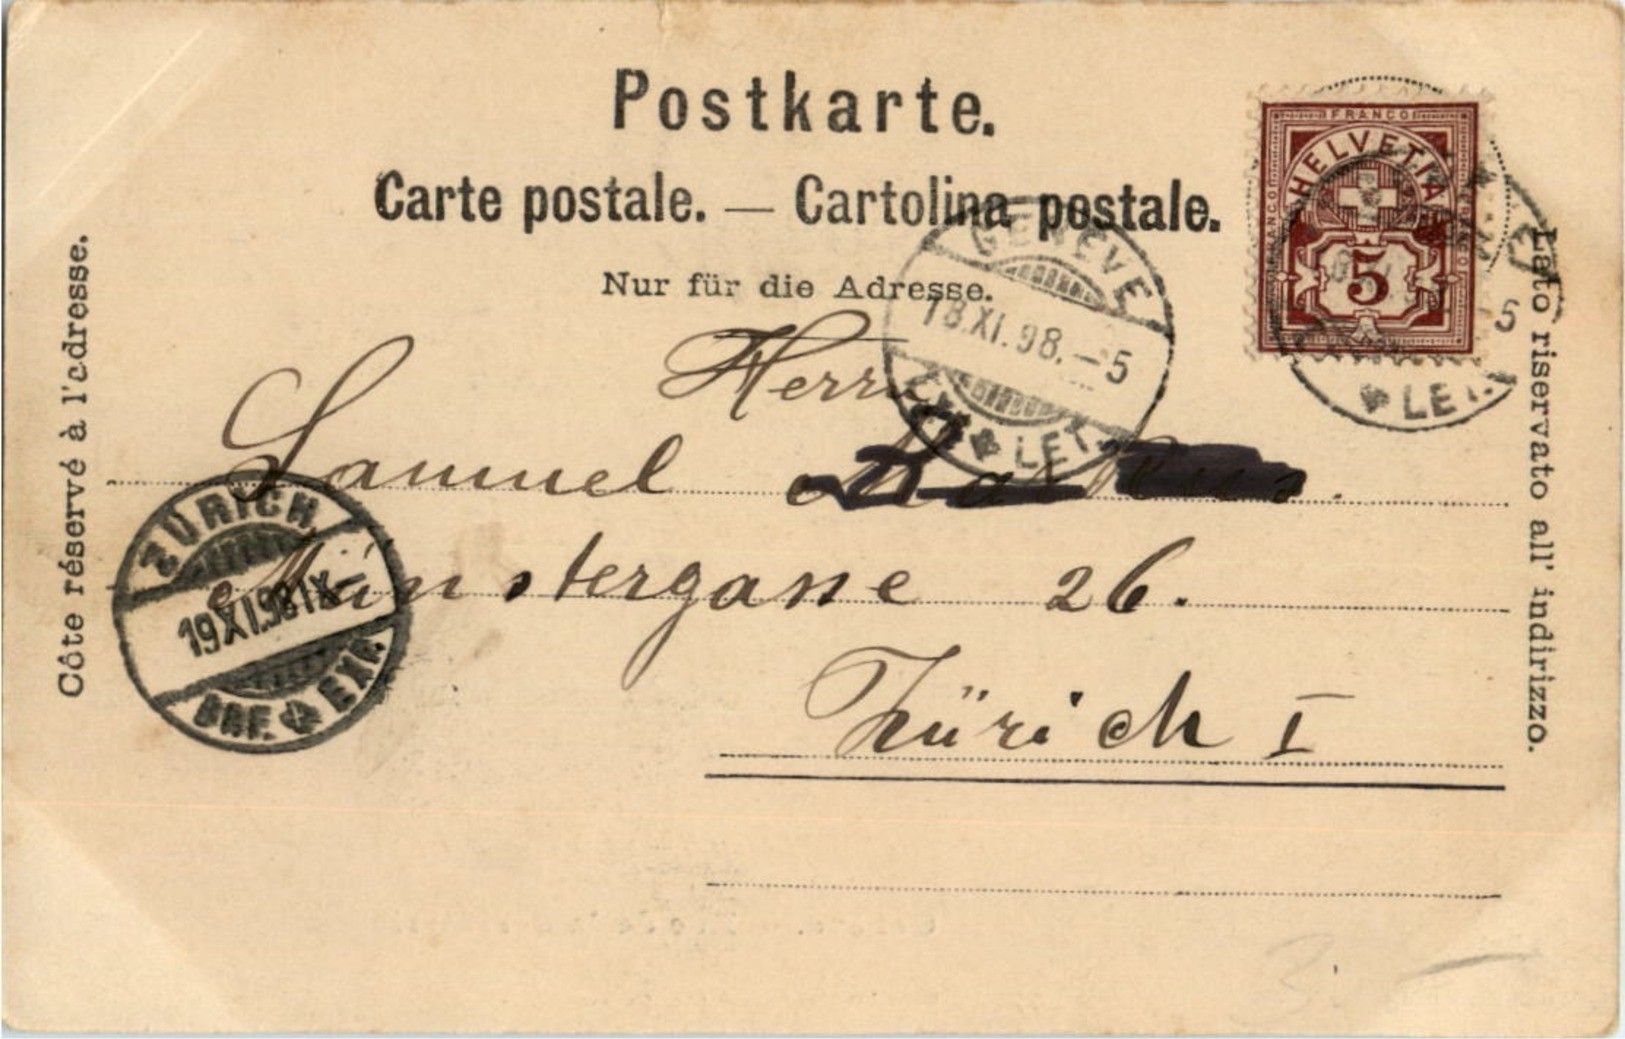 Postkarte.
Carte postale. — Cartolina postale.
Nur für die Adresse.
Côte réservé à l'adresse.
Lato riservato all' indirizzo.
FRANCO
HELVETIA
FRANCO
FRANCO
5
GENÈVE
18.XI.98.–5
EXP. LET.
5
LET.
Herrn
Samuel
Münstergasse 26.
Zürich I
ZÜRICH
19.XI.98.IX–
BRF. EXP.
3.–